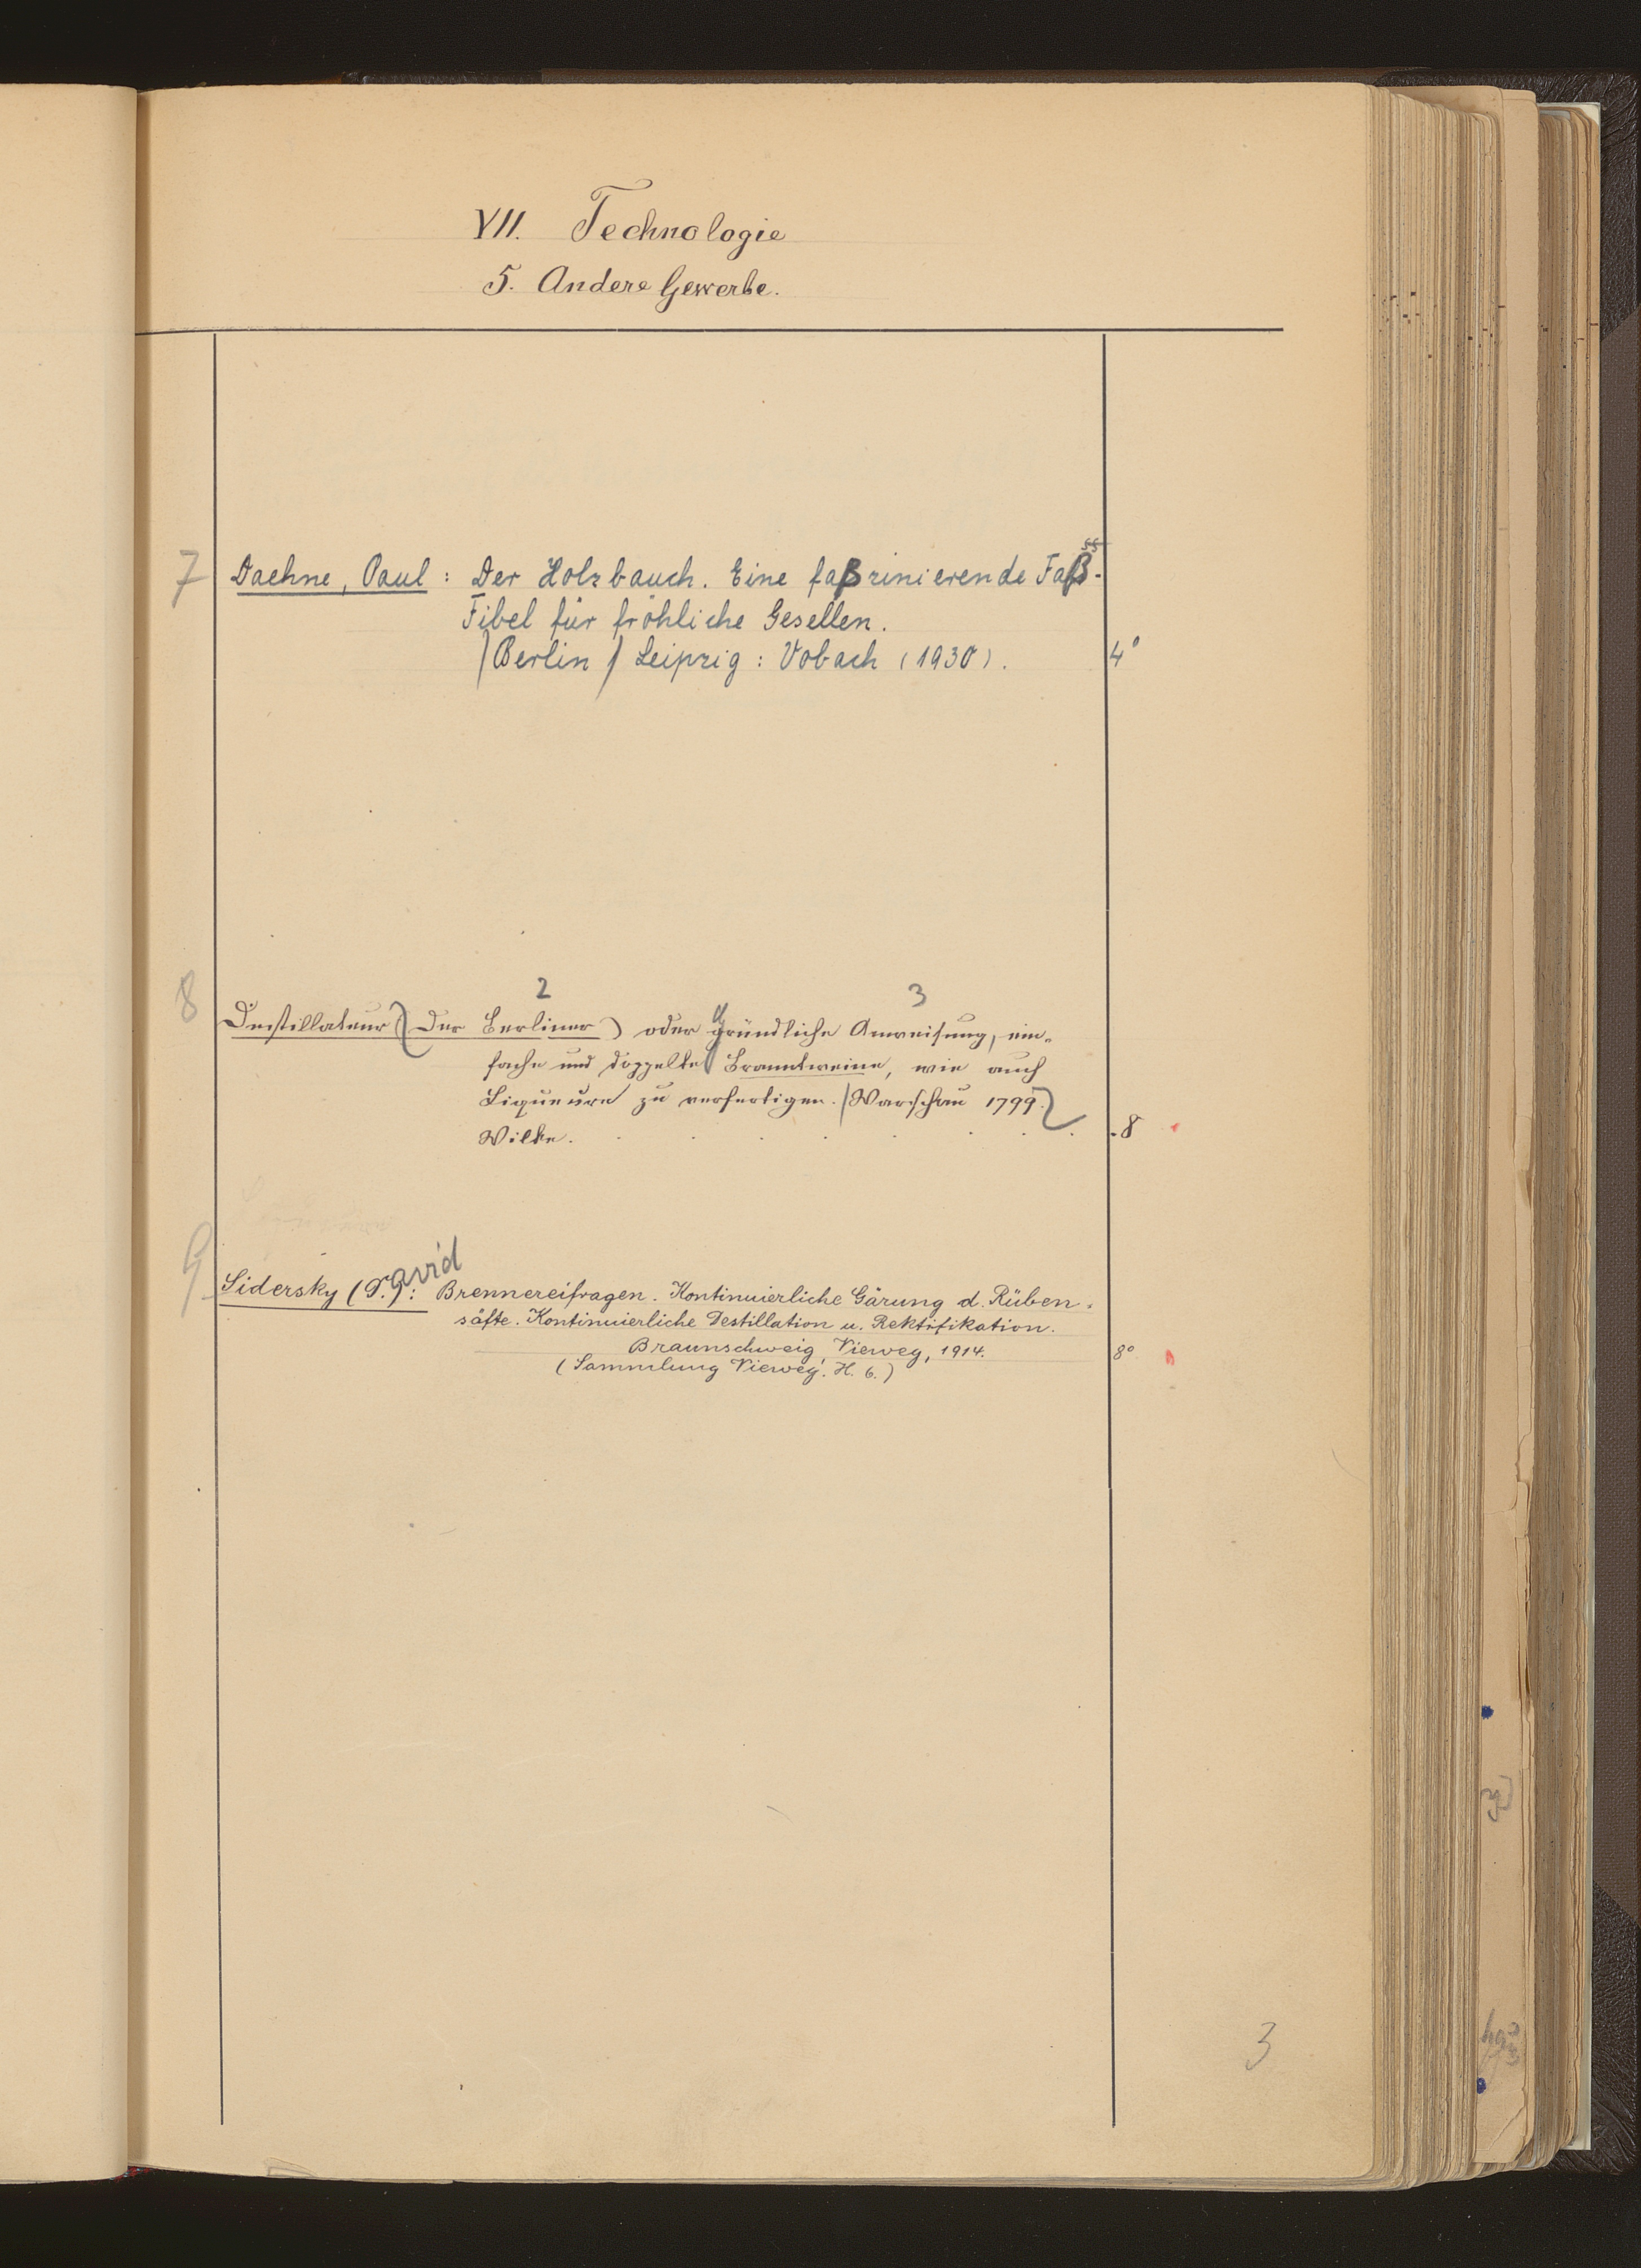 VII. Technologie
5. Andere Gewerbe.
7 Daehne, Paul: Der Holzbauch. Eine faßzinierende Faß-
ss
Fibel für fröhliche Gesellen.
/Berlin/ Leipzig: Vobach (1930). 4°
2 3
8 Destillateur (Der Berliner) oder gründliche Anweisung, ein-
fache und doppelte Branntweine, wie auch
Liqueure zu verfertigen. /Warschau 1799.
Wilke. . . . . . . . . 8
avid
9 Sidersky (D.): Brennereifragen. Kontinuierliche Gärung d. Rüben-
säfte. Kontinuierliche Destillation u. Rektifikation.
Braunschweig, Vieweg, 1914. 8°
(Sammlung Vieweg. H. 6.)
3